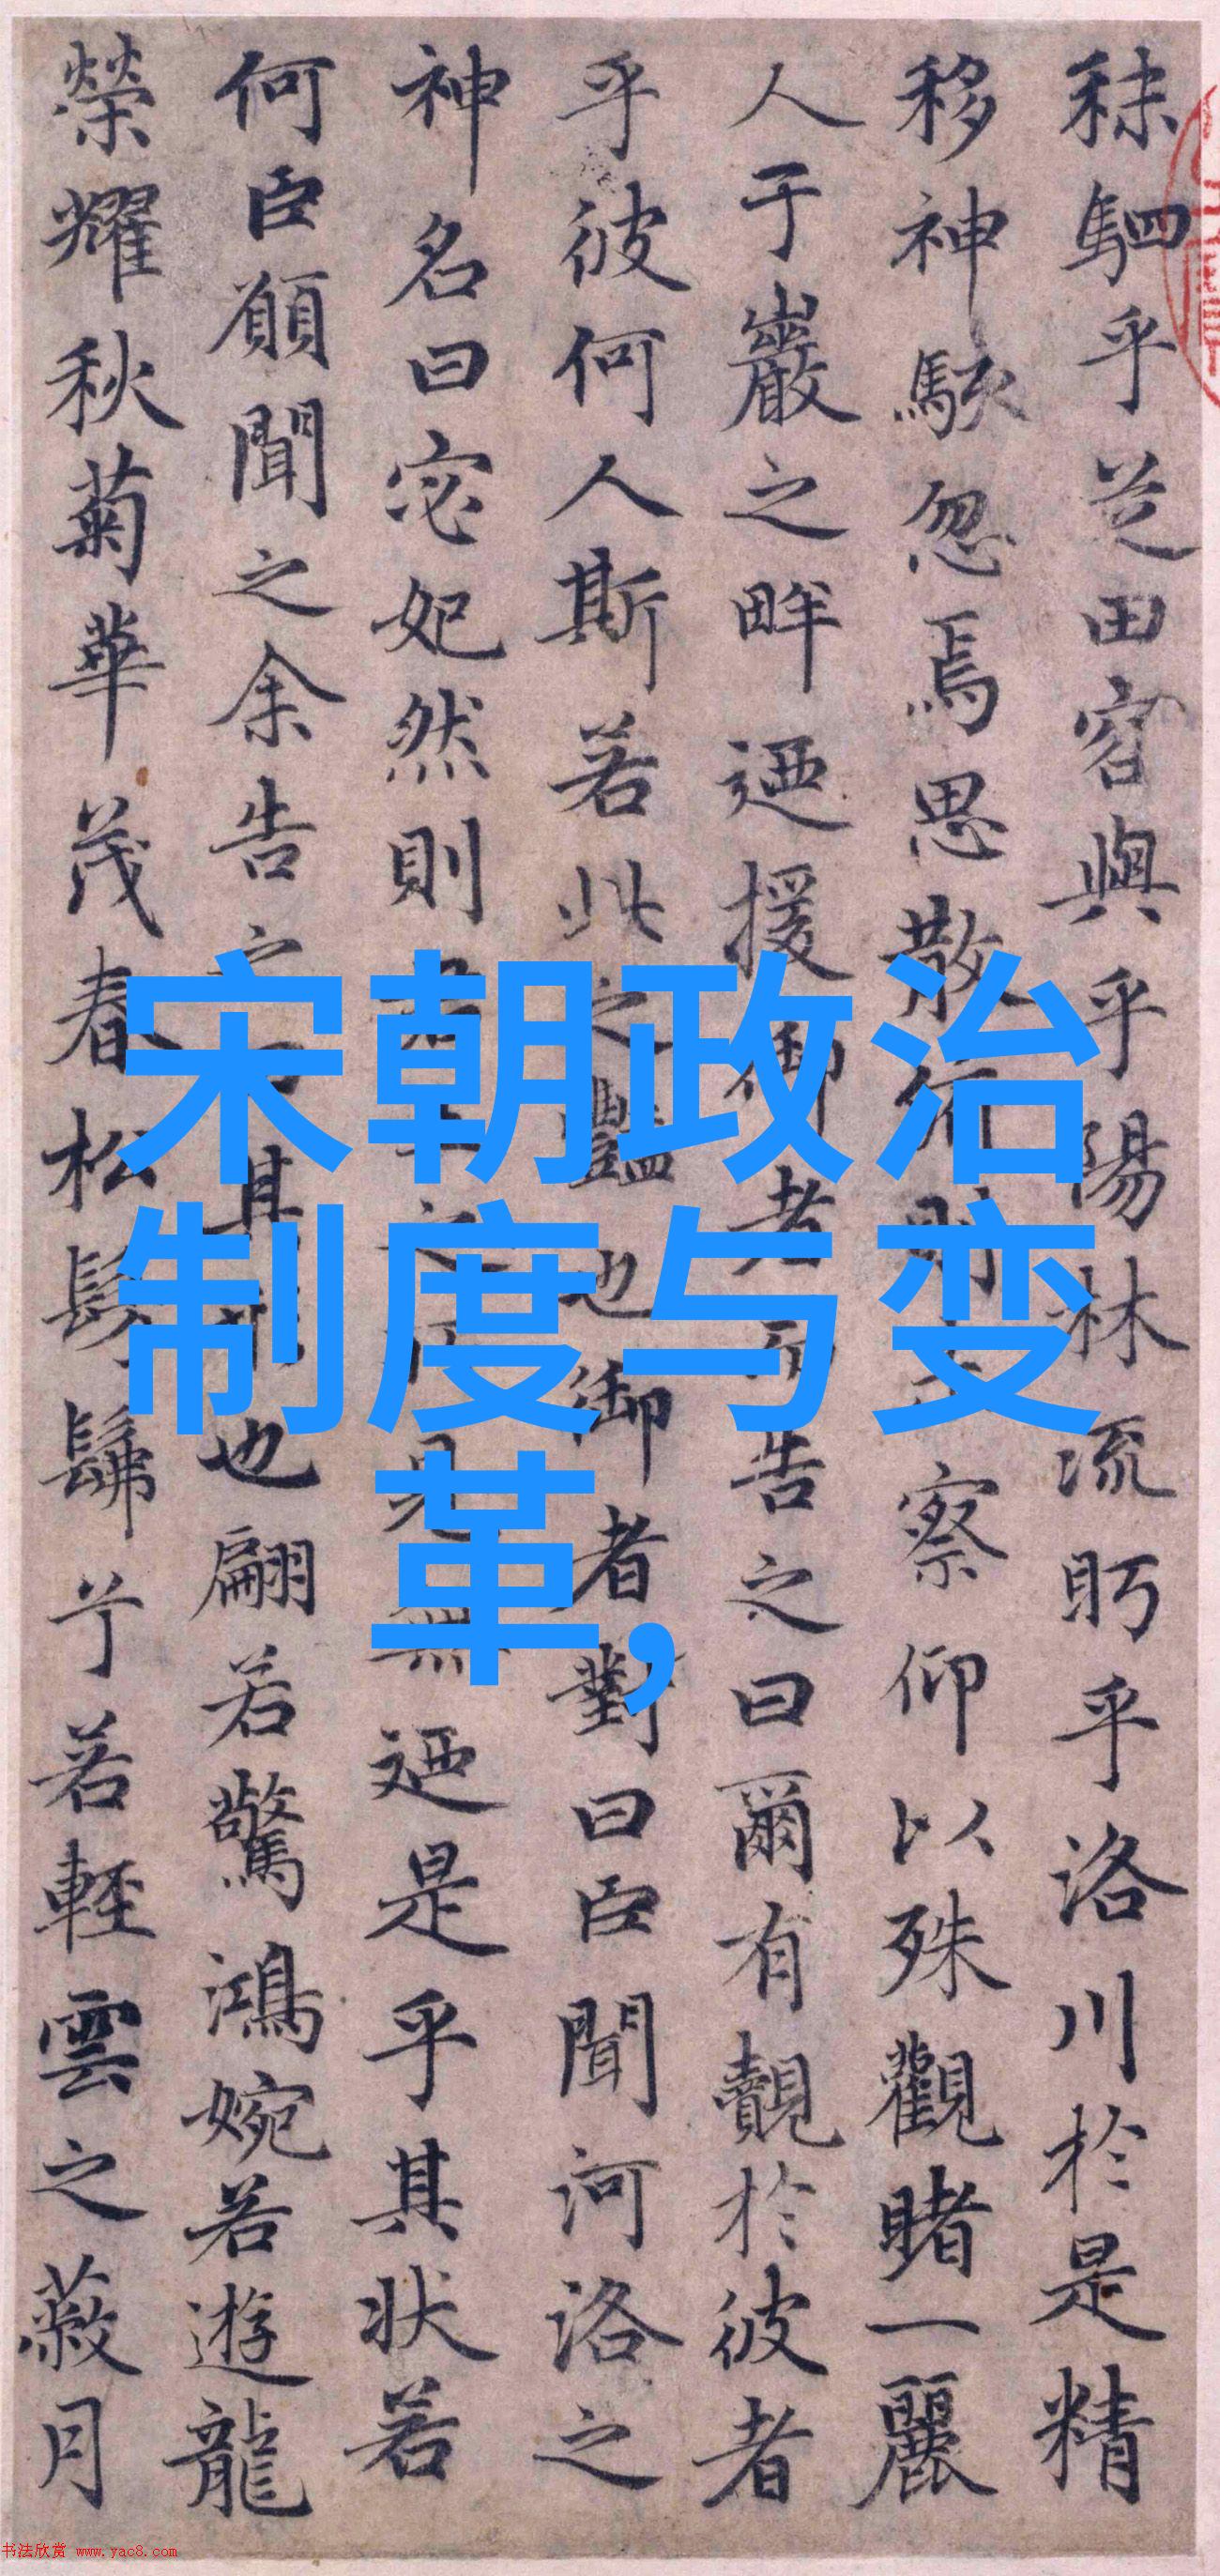 秣駟乎芝田容與乎陽林流眄乎洛川於是精
移神駭忽焉思散察仰以殊觀睹一麗
人于巖之畔迺援御者告之曰爾有覿於彼者
乎彼何人斯若此之豔也御者對曰臣聞河洛之
神名曰宓妃然則見無迺是乎其狀若
何臣願聞之余告之其也翩若驚鴻婉若遊龍
榮耀秋菊華茂春松髣髴兮若輕雲之蔽月
宋朝政治
制度与变
革,
书法欣赏 www.yac8.com